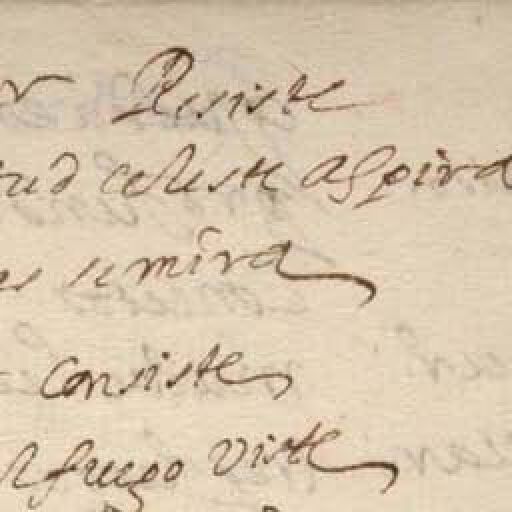 Resiste
tud celeste aspira
se mira
consiste
fuego viste